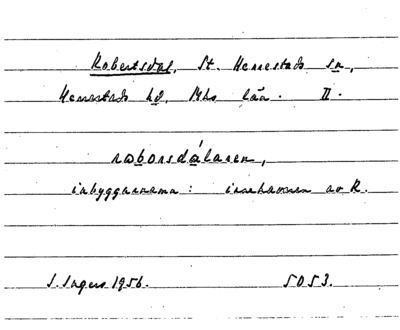 Robertsdal, St. Herrestads sn,
Herrestads hd, Mhs län. II.
roborsdálaren,
inbyggarnamn: innehavaren av R.
S. Ingers 1956. 5053.